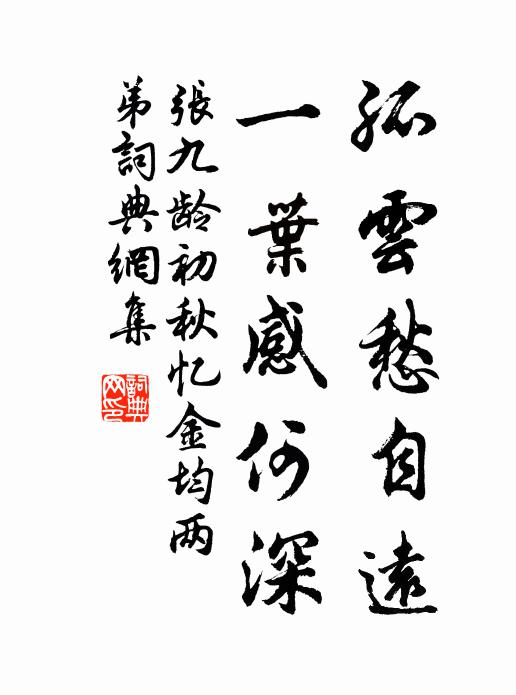 孤雲愁自遠
一葉感何深
張九龄初秋忆金均两
弟詞典網集
詞典网印